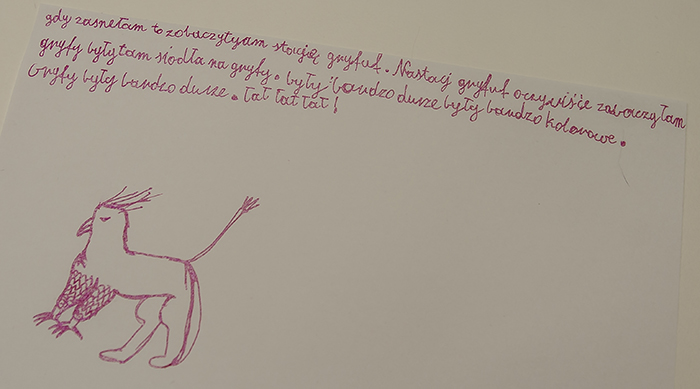 gdy zasnełam to zobaczyłyam stację gryfuf. Na stacj gryfuf oczywiśće zobaczyłam
gryfy były tam siodła na gryfy. były bardzo durze były bardzo kolorowe.
Gryfy były bardzo durze. Łał łał łał!